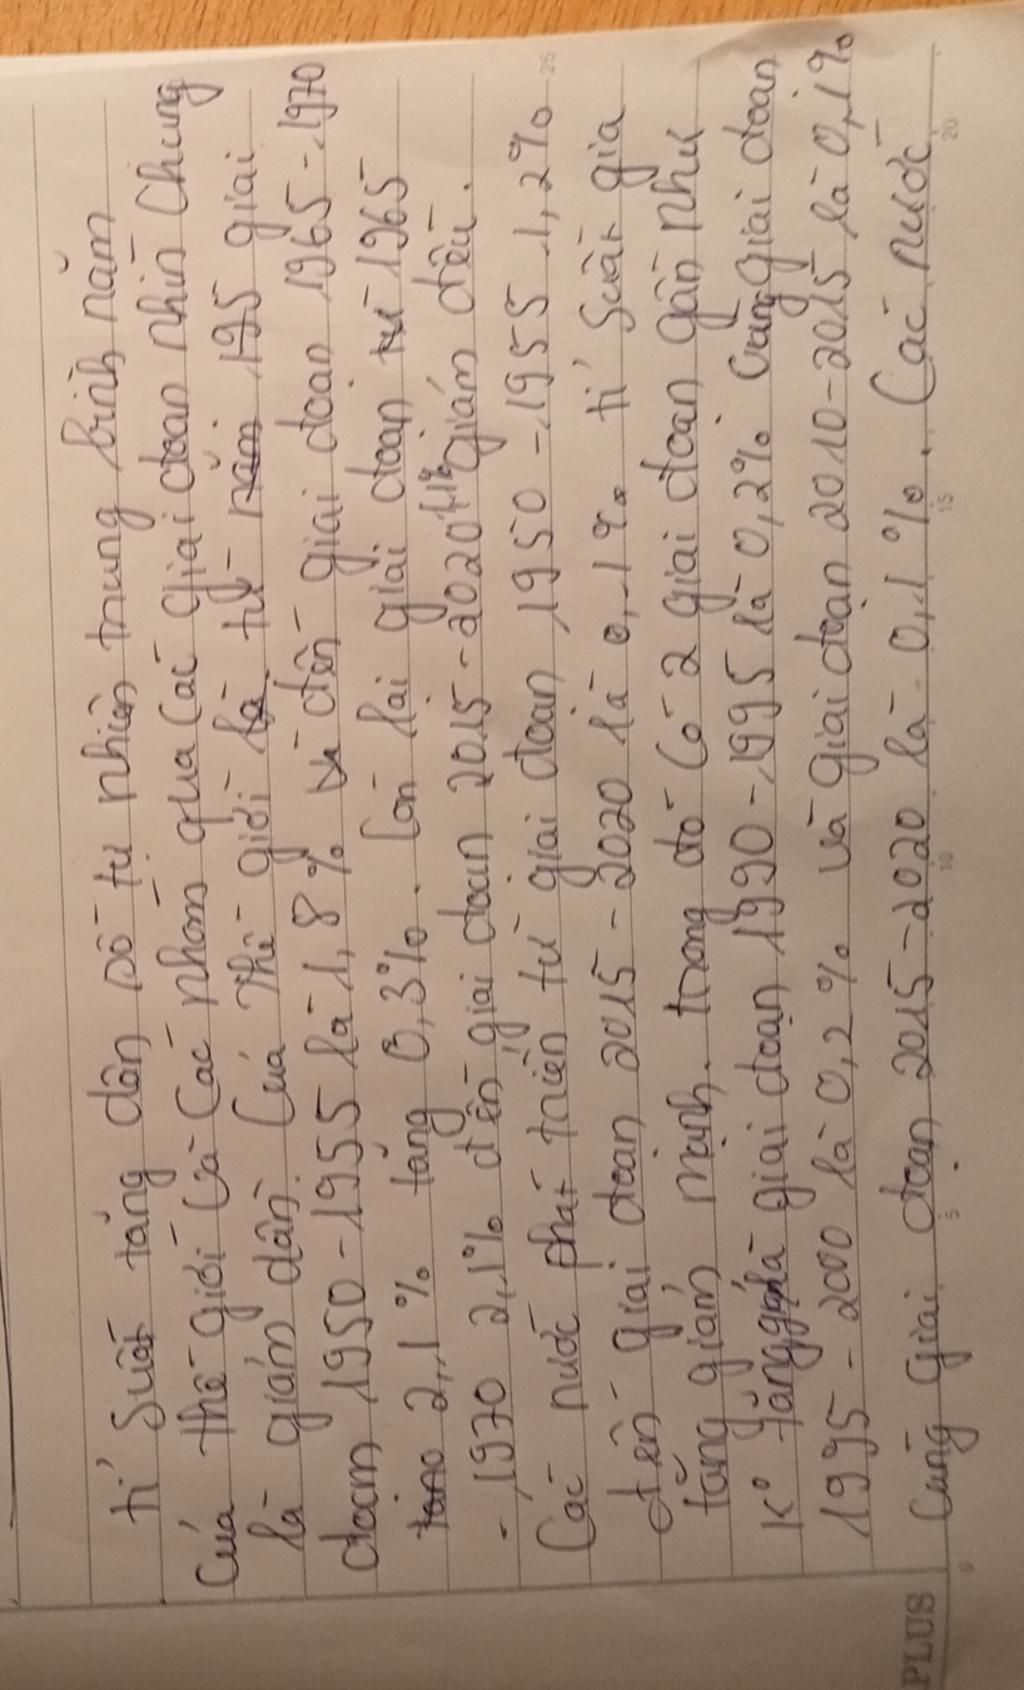 tỉ suất tăng dân số tự nhiên trung bình năm
của thế giới và các nhóm qua các giai đoạn nhìn chung
là giảm dần. Của thế giới là từ năm 195 giai
đoạn 1950-1955 là 1,8% và đến giai đoạn 1965-1970
tăng 2,1% tăng 0,3%. Còn lại giai đoạn từ 1965
- 1970 2,1% đến giai đoạn 2015-2020 1,1% giảm đều.
Các nước phát triển từ giai đoạn 1950-1955 1,2%
đến giai đoạn 2015-2020 là 0,1% tỉ suất gia
tăng giảm mạnh. trong đó có 2 giai đoạn gần như
K° tăng giai đoạn 1990-1995 là 0,2% giai đoạn
1995-2000 là 0,2% và giai đoạn 2010-2015 là 0,1%
cùng giai đoạn 2015-2020 là 0,1%. Các nước
PLUS
0
5
10
15
20
25